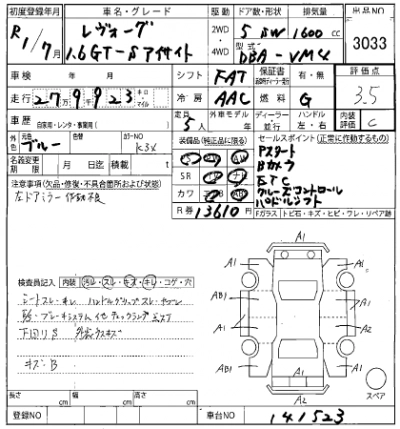 初度登録年月
R 1/7月
車名・グレード
レヴォーグ
1.6GT-S アイサイト
駆動
2WD
4WD
ドア数・形状
5 SW
排気量
1600 cc
型式
DBA-VM4
出品NO
3033
車検 年 月
シフト FAT
保証書
有・無
評価点
3.5
走行 27万9923
キロ
マイル
冷房 AAC
燃料 G
車歴
自家用・レンタ・事業用( )
定員 5人
外車モデル
年
ディーラー
並行
ハンドル
左・右
内装
評価 C
外色
元色 ブルー
色替
カラーNO
K3X
名義変更
期限 月 日迄
積載 t
装備品(純正品に限る)
SR
カワ
R券 13610 円
セールスポイント(正常に作動するもの)
Pスタート
Bカメラ
ETC
クルーズコントロール
パドルシフト
注意事項(欠品・修復・不具合箇所および状態)
左ドアミラー作動不良
Fガラス トビ石・キズ・ヒビ・ワレ・リペア跡
検査員記入
内装 汚レ・スレ・キズ・キレ・コゲ・穴
シートスレ・キレ
下回りS
キズ・B
A1
A1 A1
AB1 A1
A1 A2
AB1 A1
A1
スペア
長さ cm
幅 cm
高さ cm
登録NO
車台NO
141523